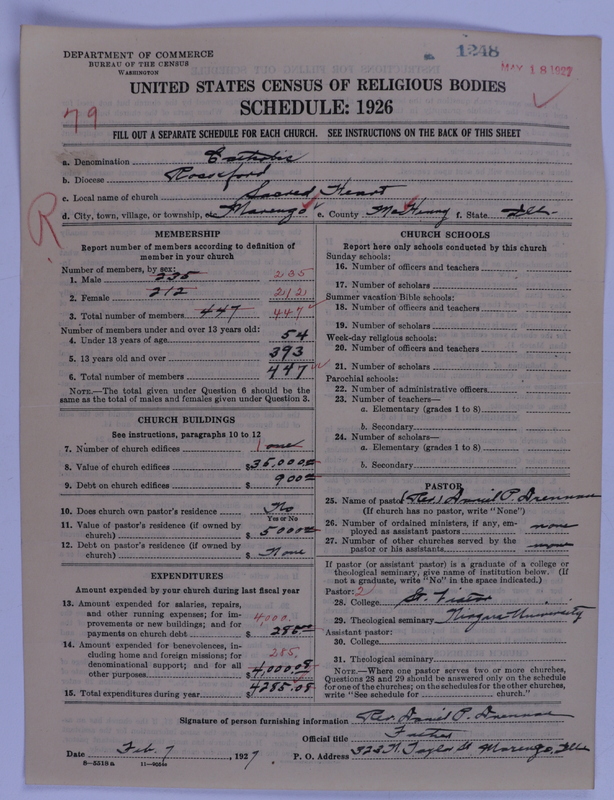 DEPARTMENT OF COMMERCE
BUREAU OF THE CENSUS
WASHINGTON
1248
MAY 18 1927
UNITED STATES CENSUS OF RELIGIOUS BODIES
SCHEDULE: 1926
79
FILL OUT A SEPARATE SCHEDULE FOR EACH CHURCH. SEE INSTRUCTIONS ON THE BACK OF THIS SHEET
a. Denomination Catholic
b. Diocese Rockford
c. Local name of church Sacred Heart
d. City, town, village, or township, Marengo e. County McHenry f. State Ill.
R
MEMBERSHIP
Report number of members according to definition of
member in your church
Number of members, by sex:
1. Male 235 235
2. Female 212 212
3. Total number of members 447 447
Number of members under and over 13 years old:
4. Under 13 years of age 54
5. 13 years old and over 393
6. Total number of members 447
NOTE.—The total given under Question 6 should be the
same as the total of males and females given under Question 3.
CHURCH BUILDINGS
See instructions, paragraphs 10 to 12
7. Number of church edifices 1 one
8. Value of church edifices $35,000.00
9. Debt on church edifices $ 900.00
10. Does church own pastor's residence No
Yes or No
11. Value of pastor's residence (if owned by
church) $ 5000.00
12. Debt on pastor's residence (if owned by
church) $ None
EXPENDITURES
Amount expended by your church during last fiscal year
13. Amount expended for salaries, repairs,
and other running expenses; for im-
provements or new buildings; and for 4000.
payments on church debt $ 285.00
14. Amount expended for benevolences, in-
cluding home and foreign missions; for 285.
denominational support; and for all
other purposes $ 4,000.08
15. Total expenditures during year $ 4285.08
CHURCH SCHOOLS
Report here only schools conducted by this church
Sunday schools:
16. Number of officers and teachers
17. Number of scholars
Summer vacation Bible schools:
18. Number of officers and teachers
19. Number of scholars
Week-day religious schools:
20. Number of officers and teachers
21. Number of scholars
Parochial schools:
22. Number of administrative officers
23. Number of teachers—
a. Elementary (grades 1 to 8)
b. Secondary
24. Number of scholars—
a. Elementary (grades 1 to 8)
b. Secondary
PASTOR
25. Name of pastor Rev. Daniel P. Drennan
(If church has no pastor, write "None")
26. Number of ordained ministers, if any, em-
ployed as assistant pastors none
27. Number of other churches served by the
pastor or his assistants none
If pastor (or assistant pastor) is a graduate of a college or
theological seminary, give name of institution below. (If
not a graduate, write "No" in the space indicated.)
Pastor: 2
28. College St. Viator
29. Theological seminary Niagara University
Assistant pastor:
30. College
31. Theological seminary
NOTE.—Where one pastor serves two or more churches,
Questions 28 and 29 should be answered only on the schedule
for one of the churches; on the schedules for the other churches,
write "See schedule for church."
Signature of person furnishing information Rev. Daniel P. Drennan
Official title Father
Date Feb. 7, 1927 P. O. Address 323 N. Taylor St. Marengo, Ills
8—5318a